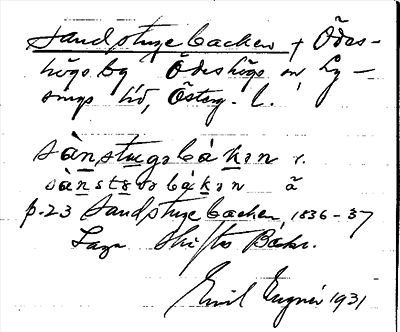 Sandstugebacken, Ödes-
högs by Ödeshögs sn Ly-
sings hd, Österg. l.
sàn̲stu̲gəbák̲ən r.
sàn̲st bák̲ən ä
p. 23 Sandstuge backen 1836-37
Laga Skifts Beskr.
Emil 1931